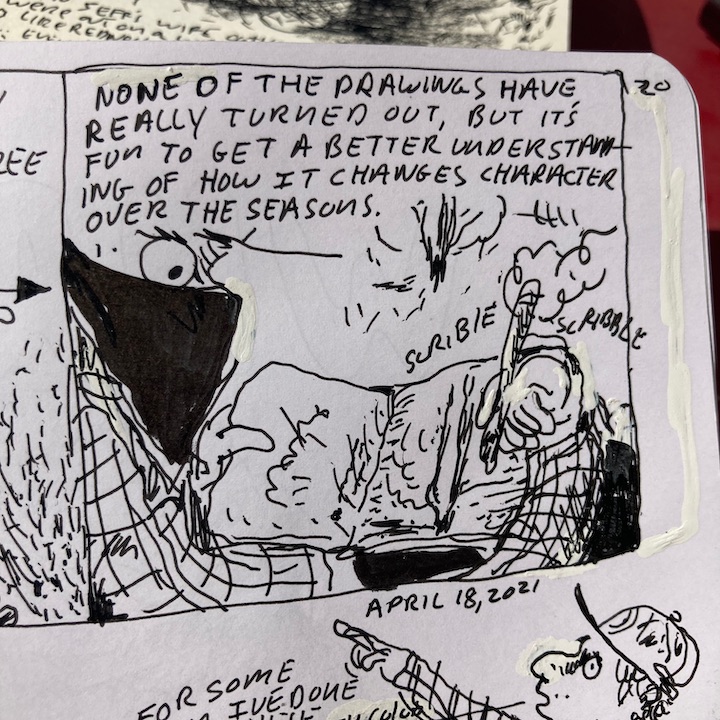 WERE JEFF'S WIFE
REE
20
NONE OF THE DRAWINGS HAVE
REALLY TURNED OUT, BUT IT'S
FUN TO GET A BETTER UNDERSTAN-
ING OF HOW IT CHANGES CHARACTER
OVER THE SEASONS.
SCRIBLE
SCRIBBLE
APRIL 18, 2021
FOR SOME
I'VE DONE
COLOR